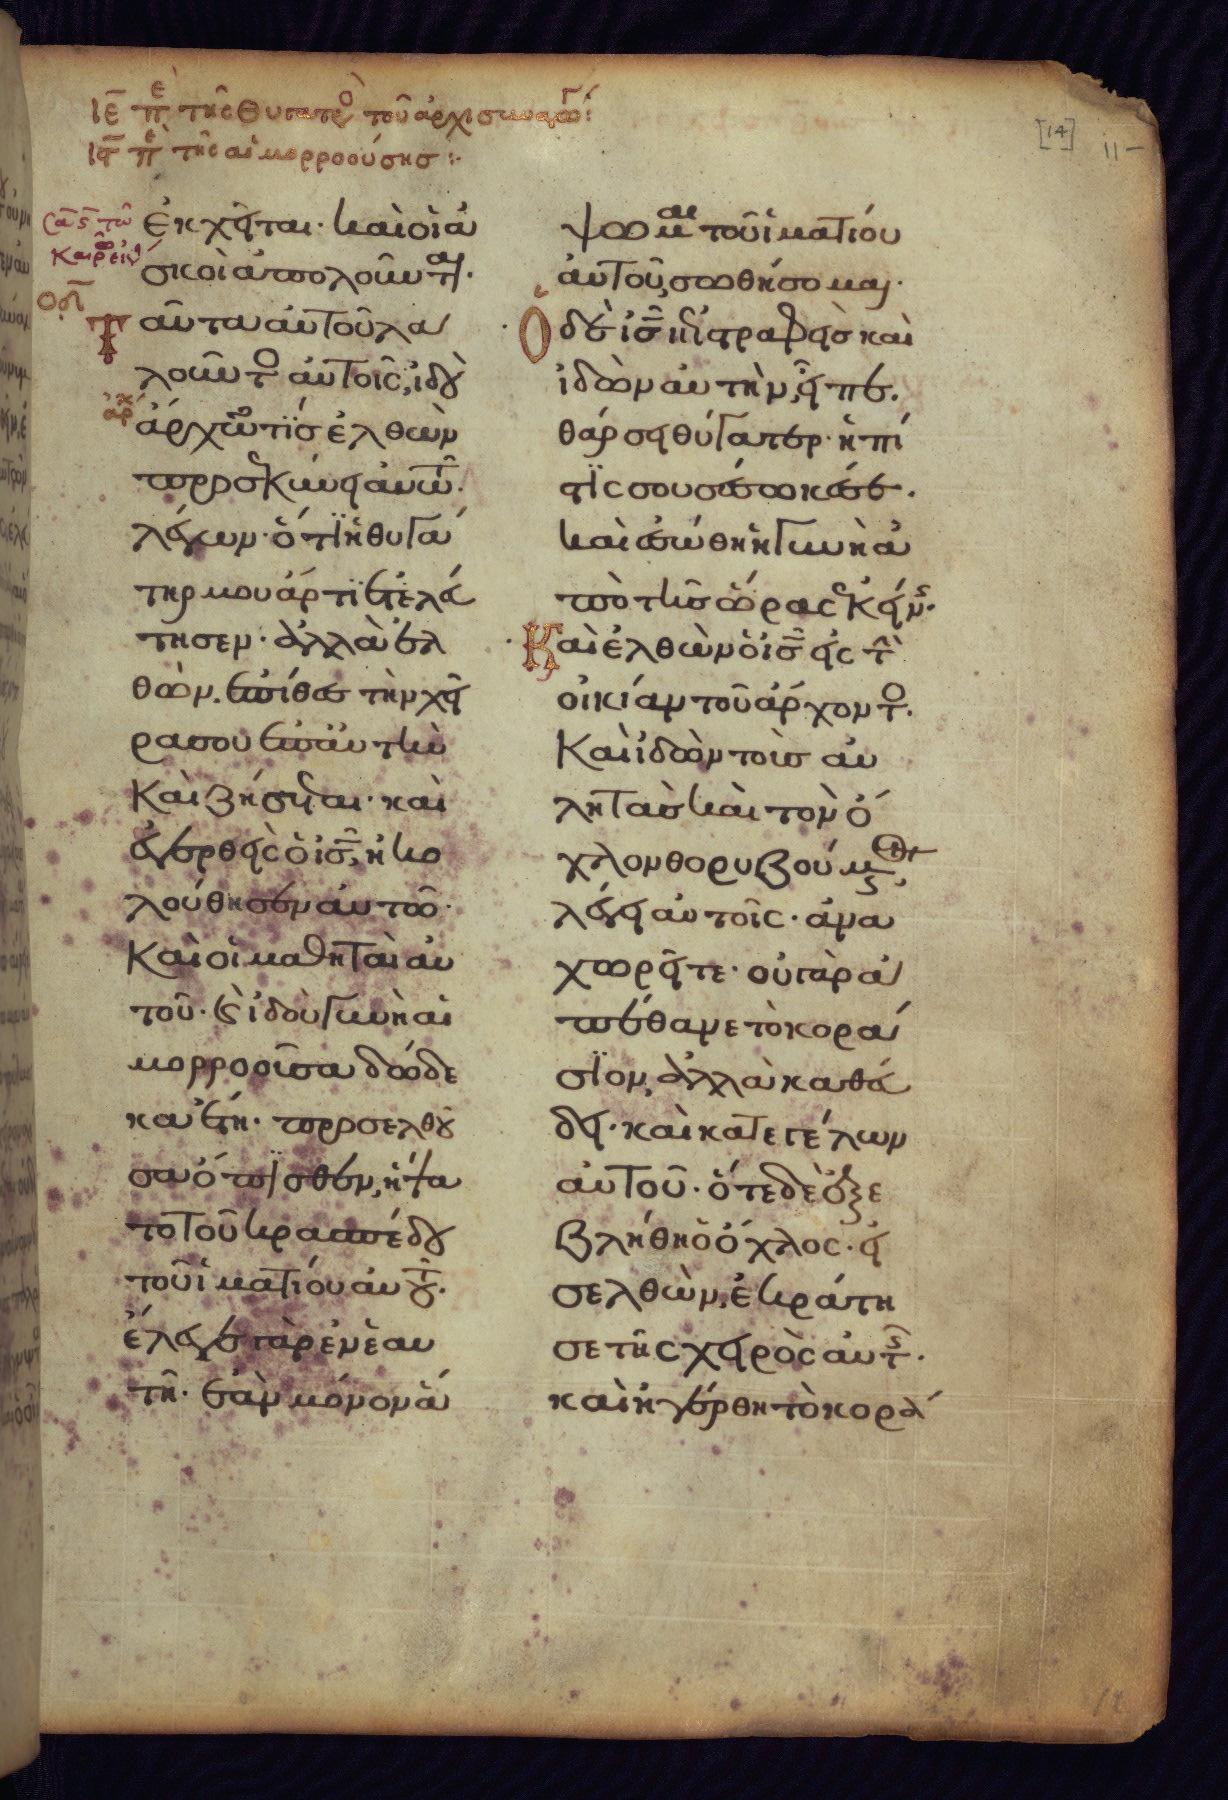 ΙΕ πε τῆς θυγατρὸ τοῦ ἀρχισυναγώγ:
Ις πε τῆς αἱμορροούσης:·
[14] 11-
Σα ς τῶ
καιρῶ ἐκείν
ἐκχεῖται· καὶ οἱ ἀ
σκοὶ ἀπολοῦνται·
Ταῦτα αὐτοῦ λα
λοῦντο αὐτοῖς, ἰδοὺ
αρχ
ἄρχων τῒς ἐλθὼν
προσεκύνει αὐτῶ·
λέγων· ὅτϊ ἡ θυγά
τηρ μου ἄρτϊ ἐτελεύ
τησεν· ἀλλὰ ἐλ
θὼν, ἐπίθες τὴν χεῖ
ρα σου ἐπ αὐτὴν
καὶ ζήσεται· καὶ
ἐγερθεὶς ὁ ις, ἠκο
λούθησεν αὐτῶ·
καὶ οἱ μαθηταὶ αὐ
τοῦ· καὶ ἰδοὺ γυνὴ αἱ
μορροοῦσα δώδε
κα ἔτη· προσελθοῦ
σα ὄπισθεν, ἥψα
το τοῦ κρασπέδου
τοῦ ἱματίου αὐτοῦ·
ἔλεγε γὰρ ἐν ἑαυ
τῆ· ἐὰν μόνον ἅ
ψωμαι τοῦ ἱματίου
αὐτοῦ, σωθήσομαι·
Ὁ δὲ ις ἐπιστραφεὶς καὶ
ἰδὼν αὐτὴν, εἶπε·
θάρσει θύγατερ· ἡ πί
στϊς σου σέσωκέ σε·
καὶ ἐσώθη ἡ γυνὴ ἀ
πὸ τῆς ὥρας ἐκείνης·
Καὶ ἐλθὼν ὁ ις εἰς τὴν
οἰκίαν τοῦ ἄρχοντο·
καὶ ἰδὼν τοὺς αὐ
λητὰς καὶ τὸν ὄ
χλον θορυβούμενον,
λέγει αὐτοῖς· ἀνα
χωρεῖτε· οὐ γὰρ ἀ
πέθανε τὸ κορά
σϊον, ἀλλὰ καθεύ
δει· καὶ κατεγέλων
αὐτοῦ· ὅτε δὲ ἐξε
βλήθη ὁ ὄχλος· εἰ
σελθὼν, ἐκράτη
σε τῆς χειρὸς αὐτῆς·
καὶ ἠγέρθη τὸ κορά